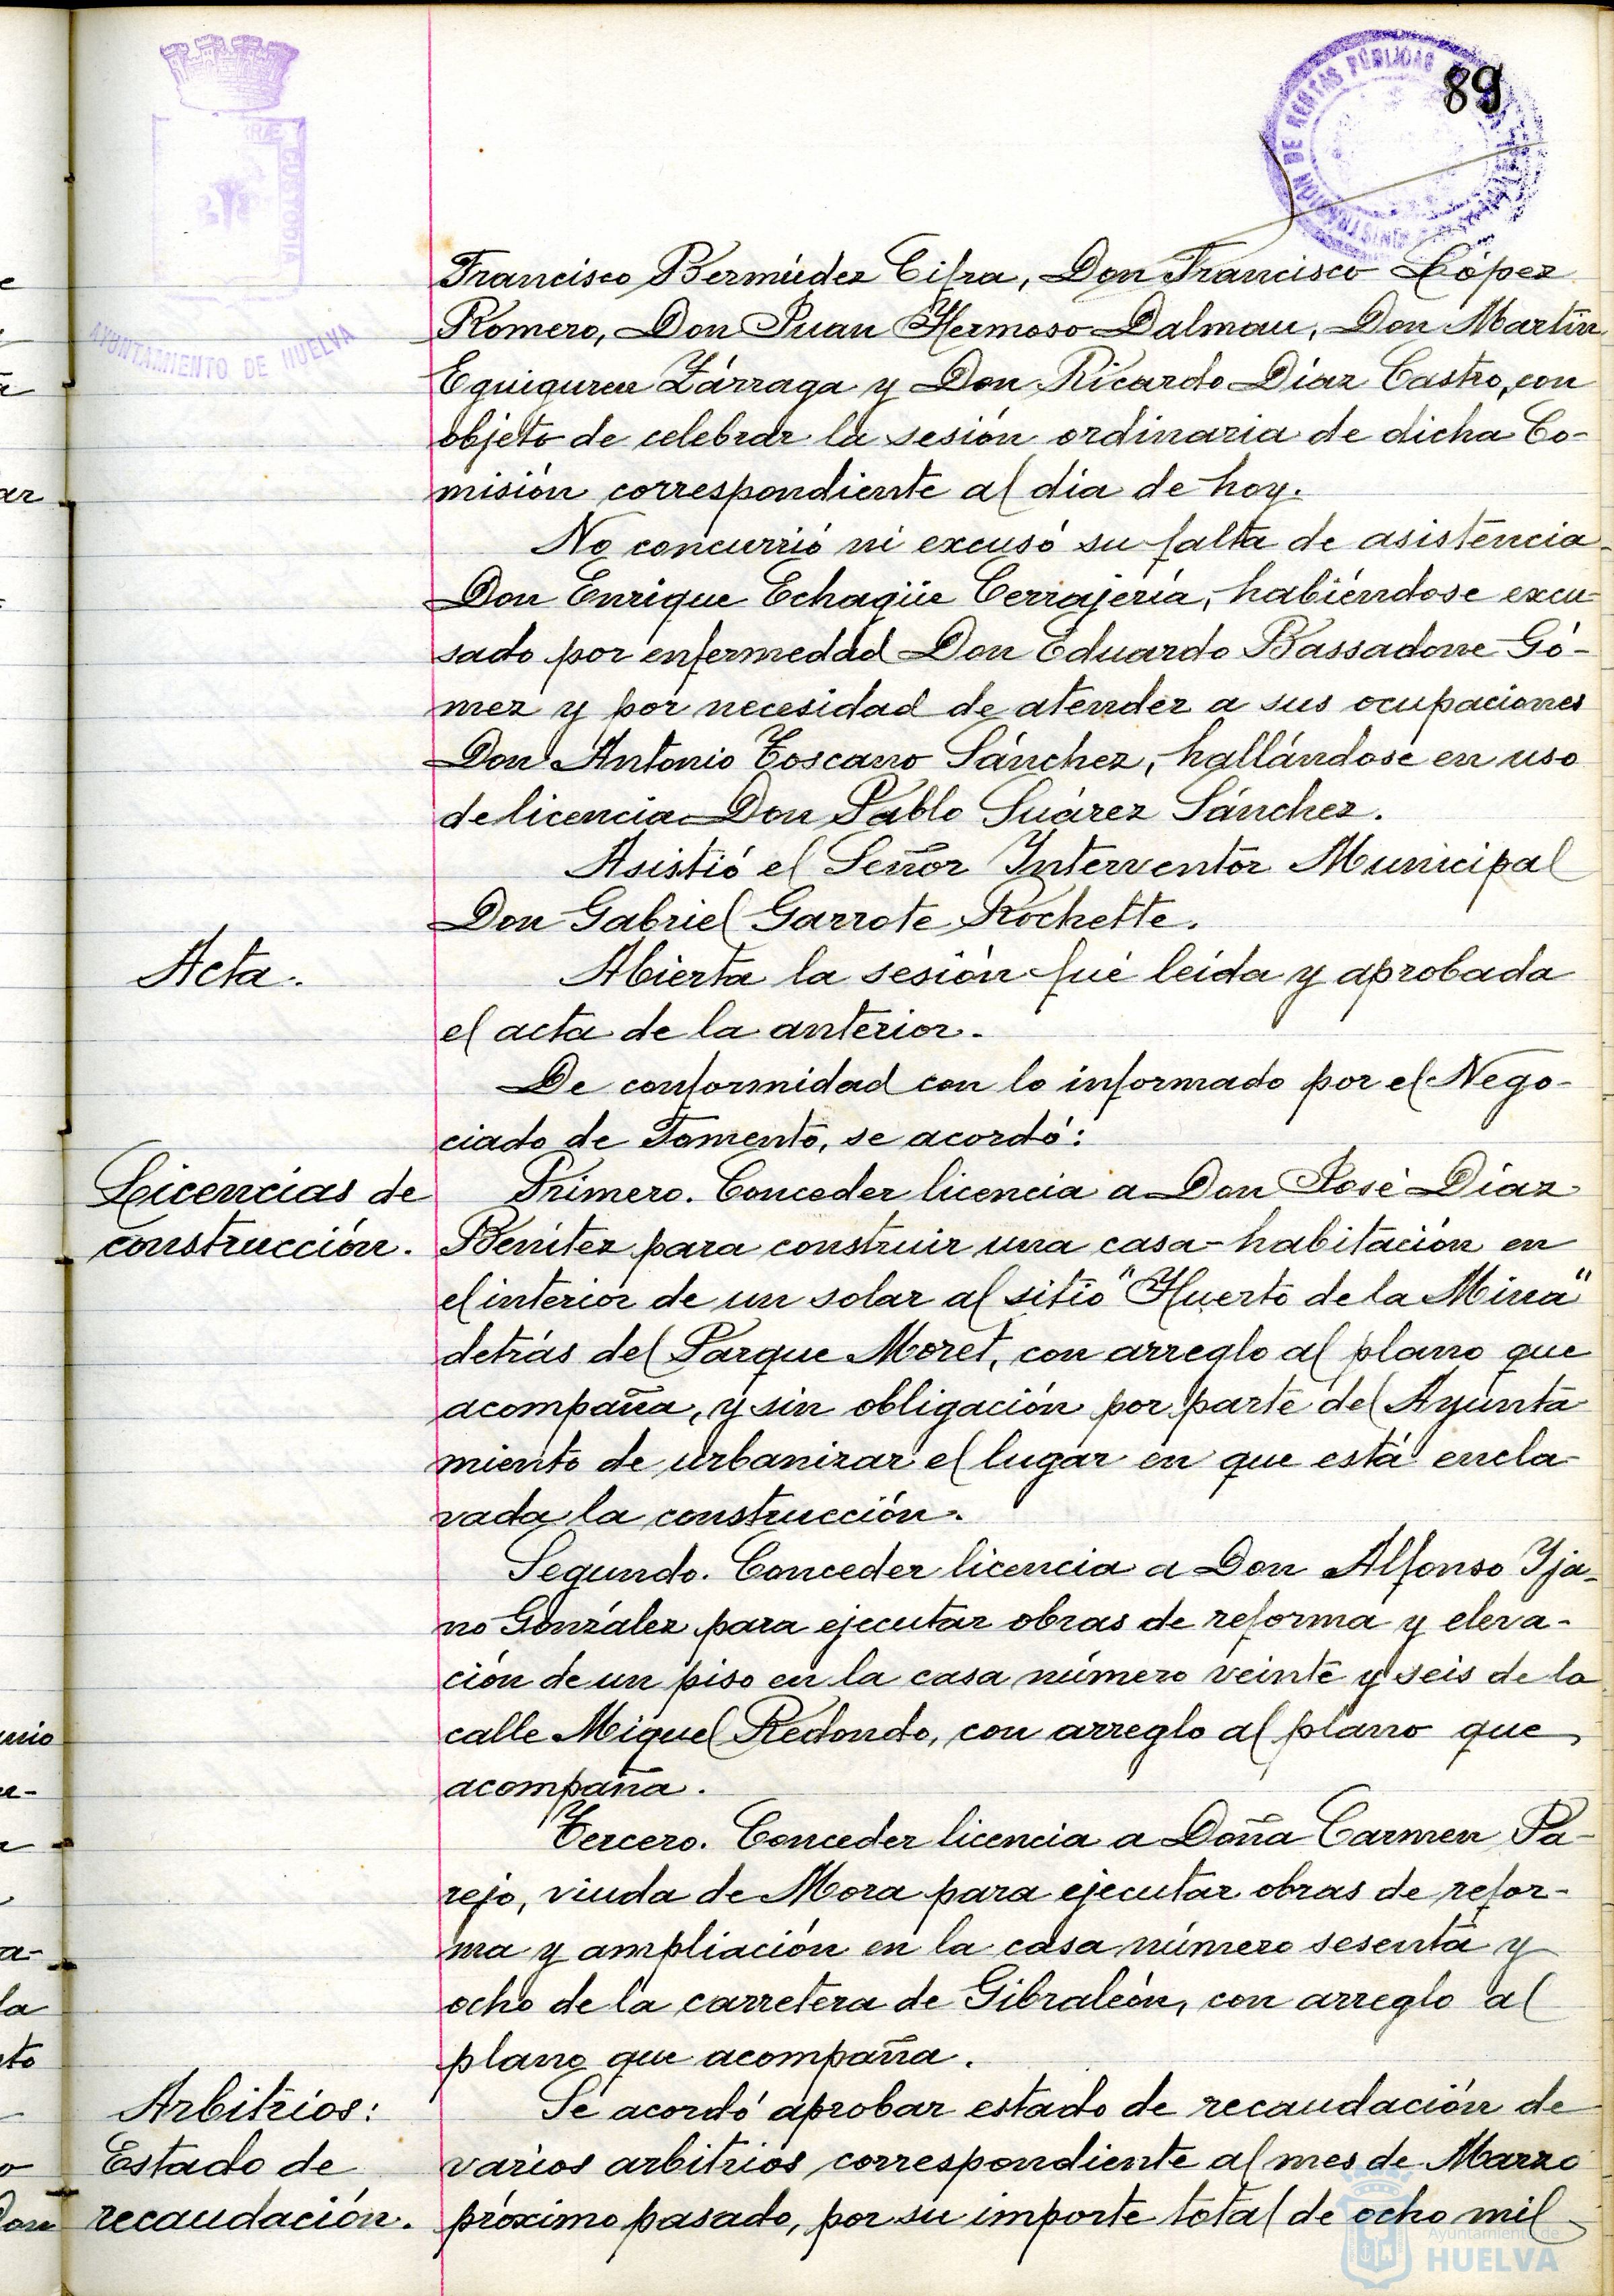 89
ADMINISTRACIÓN DE RENTAS PÚBLICAS
CUSTODIA
AYUNTAMIENTO DE HUELVA
Francisco Bermúdez Cifra, Don Francisco López
Romero, Don Juan Hermoso Dalmau, Don Martín
Eguiguren Zárraga y Don Ricardo Díaz Castro, con
objeto de celebrar la sesión ordinaria de dicha Co-
misión correspondiente al día de hoy.
No concurrió ni excusó su falta de asistencia
Don Enrique Echagüe Cerrajería, habiéndose excu-
sado por enfermedad Don Eduardo Bassadone Gó-
mez y por necesidad de atender a sus ocupaciones
Don Antonio Toscano Sánchez, hallándose en uso
de licencia Don Pablo Suárez Sánchez.
Asistió el Señor Interventor Municipal
Don Gabriel Garrote Rochette.
Acta.
Abierta la sesión fué leída y aprobada
el acta de la anterior.
De conformidad con lo informado por el Nego-
ciado de Fomento, se acordó:
Licencias de
construcción.
Primero. Conceder licencia a Don José Díaz
Benítez para construir una casa-habitación en
el interior de un solar al sitio "Huerto de la Mina"
detrás del Parque Moret, con arreglo al plano que
acompaña, y sin obligación por parte del Ayunta
miento de urbanizar el lugar en que está encla-
vada la construcción.
Segundo. Conceder licencia a Don Alfonso Yja-
no González para ejecutar obras de reforma y eleva-
ción de un piso en la casa número veinte y seis de la
calle Miguel Redondo, con arreglo al plano que
acompaña.
Tercero. Conceder licencia a Doña Carmen Pa-
rejo, viuda de Mora para ejecutar obras de refor-
ma y ampliación en la casa número sesenta y
ocho de la carretera de Gibraleón, con arreglo al
plano que acompaña.
Arbitrios:
Estado de
recaudación.
Se acordó aprobar estado de recaudación de
varios arbitrios correspondiente al mes de Marzo
próximo pasado, por su importe total de ocho mil
Ayuntamiento de
HUELVA